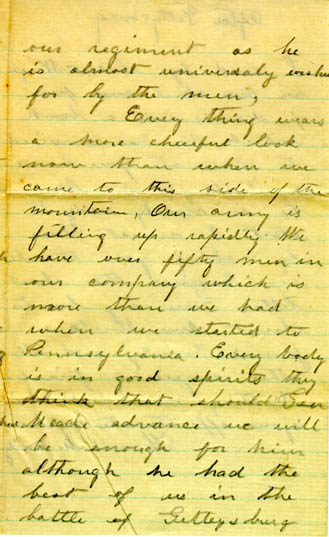 our regiment as he
is almost universaly wished
for by the men,
Every thing wears
a more cheerful look
now than when we
came to this side of the
mountain, Our army is
filling up rapidly We
have over fifty men in
our company which is
more than we had
when we started to
Pennsylvania. Every body
is in good spirits they
think that should Gen
Meade advance we will
be enough for him
although he had the
best of us in the
battle of Gettysburg